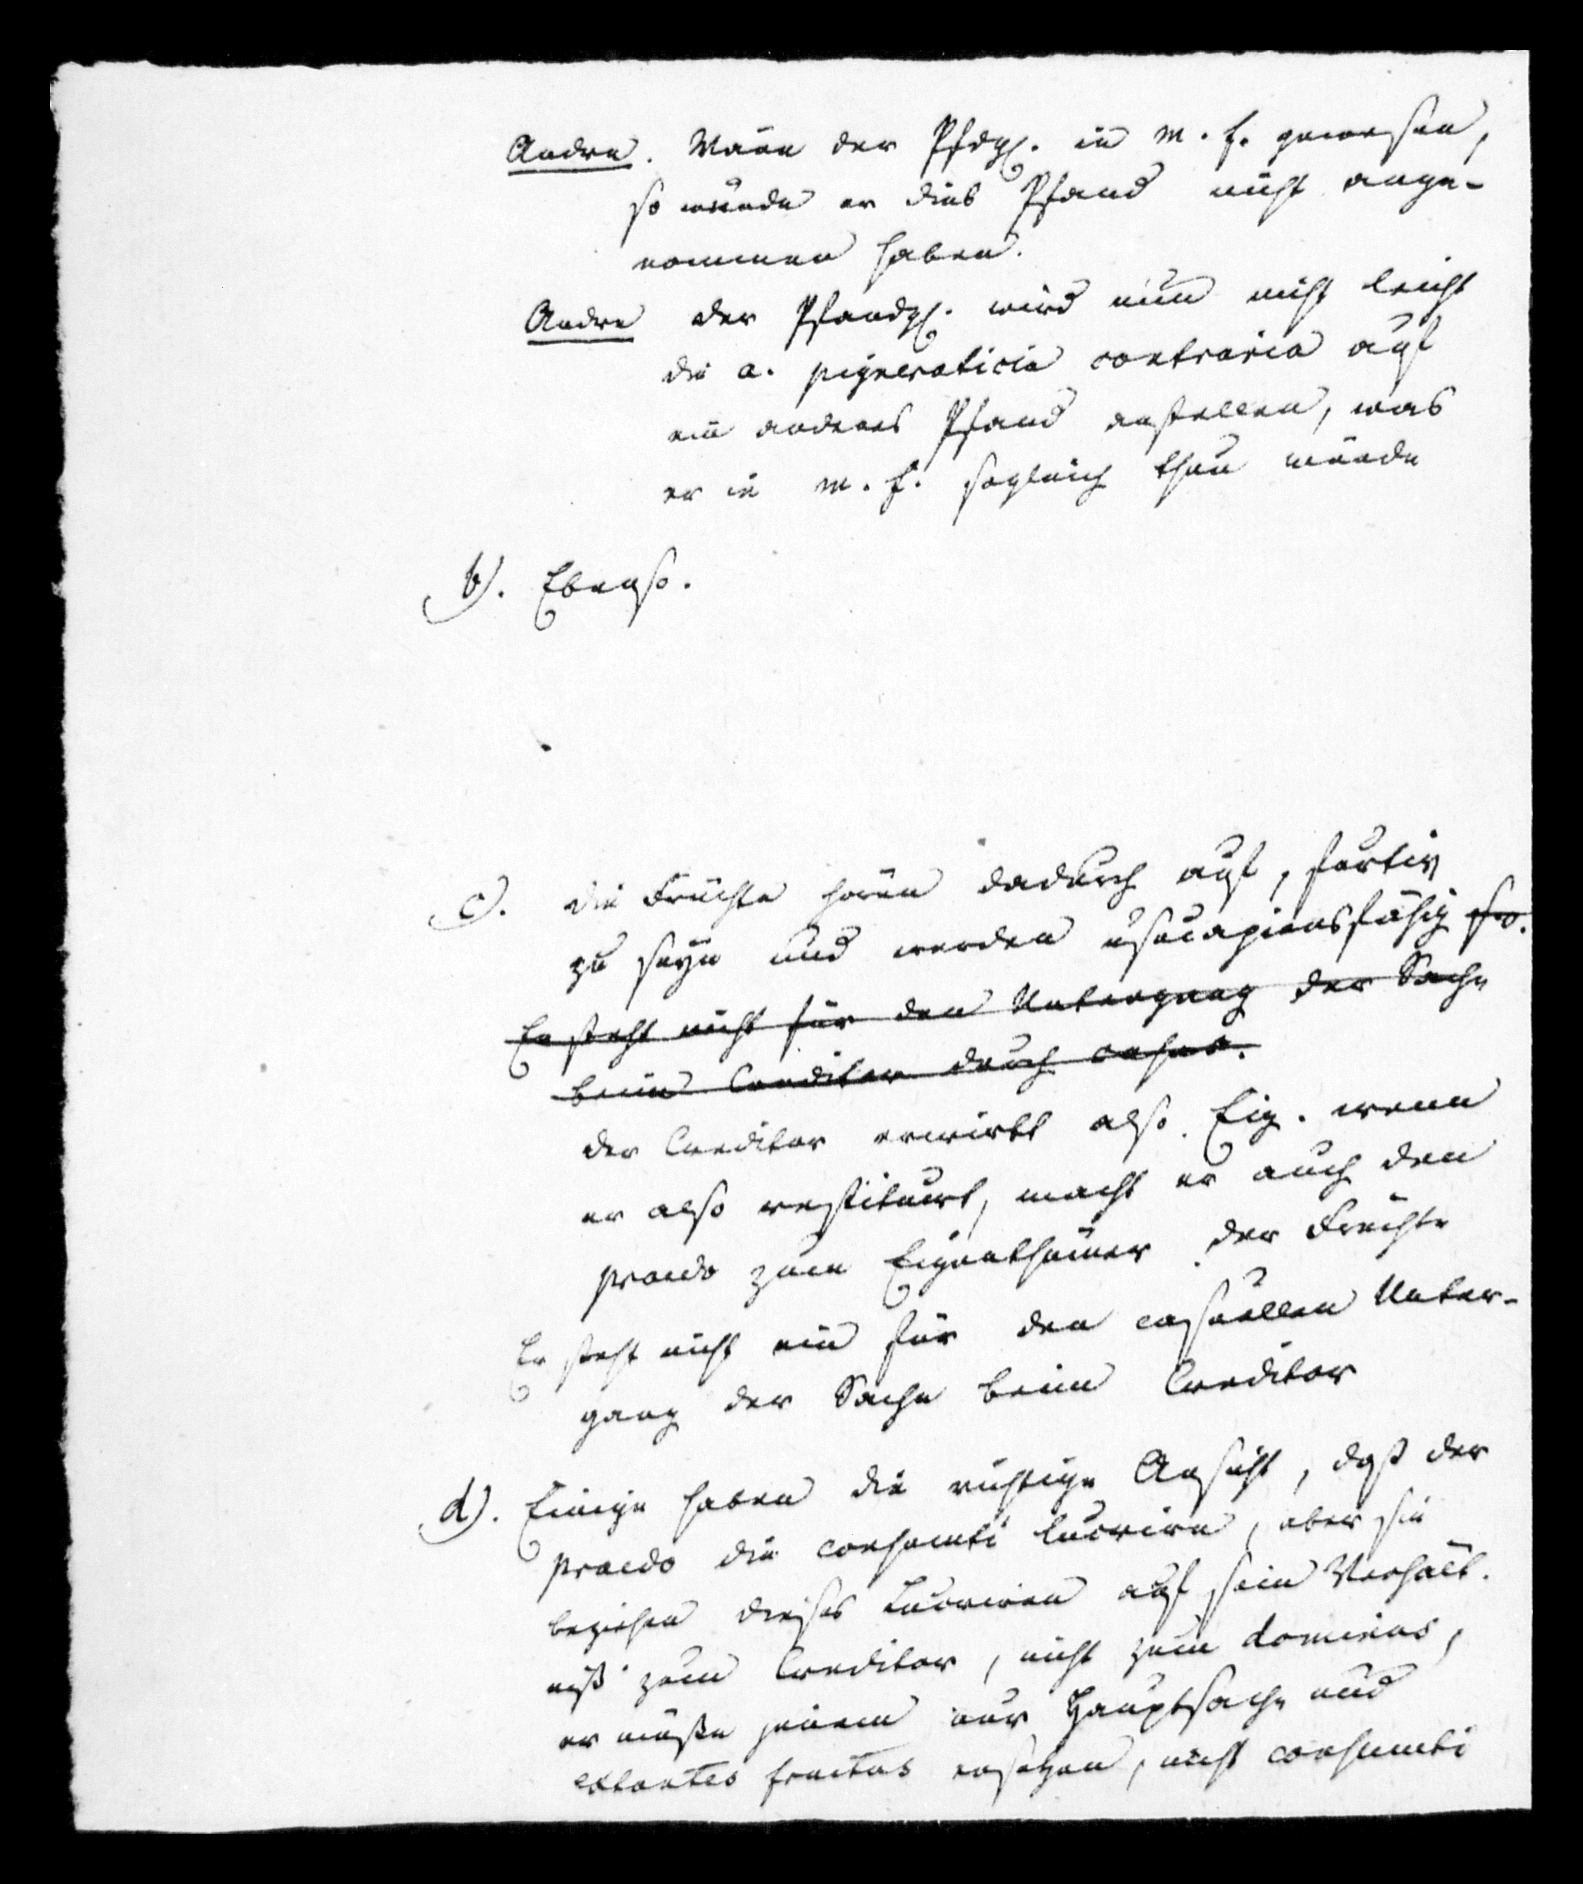 Andre. Wäre der Pfdgl. in m. f. gewesen,
so würde er dies Pfand nicht ange-
nommen haben.
Andre der Pfandgl. wird nun nicht leicht
die a. pigneraticia contraria auf
ein anderes Pfand anstellen, was
er in m. f. sogleich thun würde
b). Ebenso.
c). die Früchte hören dadurch auf, furtiv
zu seyn und werden usucapionsfähig
Er steht nicht für den Untergang der Sache
beim Creditor durch casus.
der Creditor erwirbt also Eig. wenn
er also restituirt, macht er auch den
praedo zum Eigenthümer der Früchte
Er steht nicht ein für den casuellen Unter-
gang der Sache beim Creditor
d). Einige haben die richtige Ansicht, daß der
praedo die consumti lucrire, aber sie
beziehen dieses Lucriren auf sein Verhält-
niß zum Creditor, nicht zum dominus,
er müsse jenem nur Hauptsache und
extantes fructus ersetzen, nicht consumti